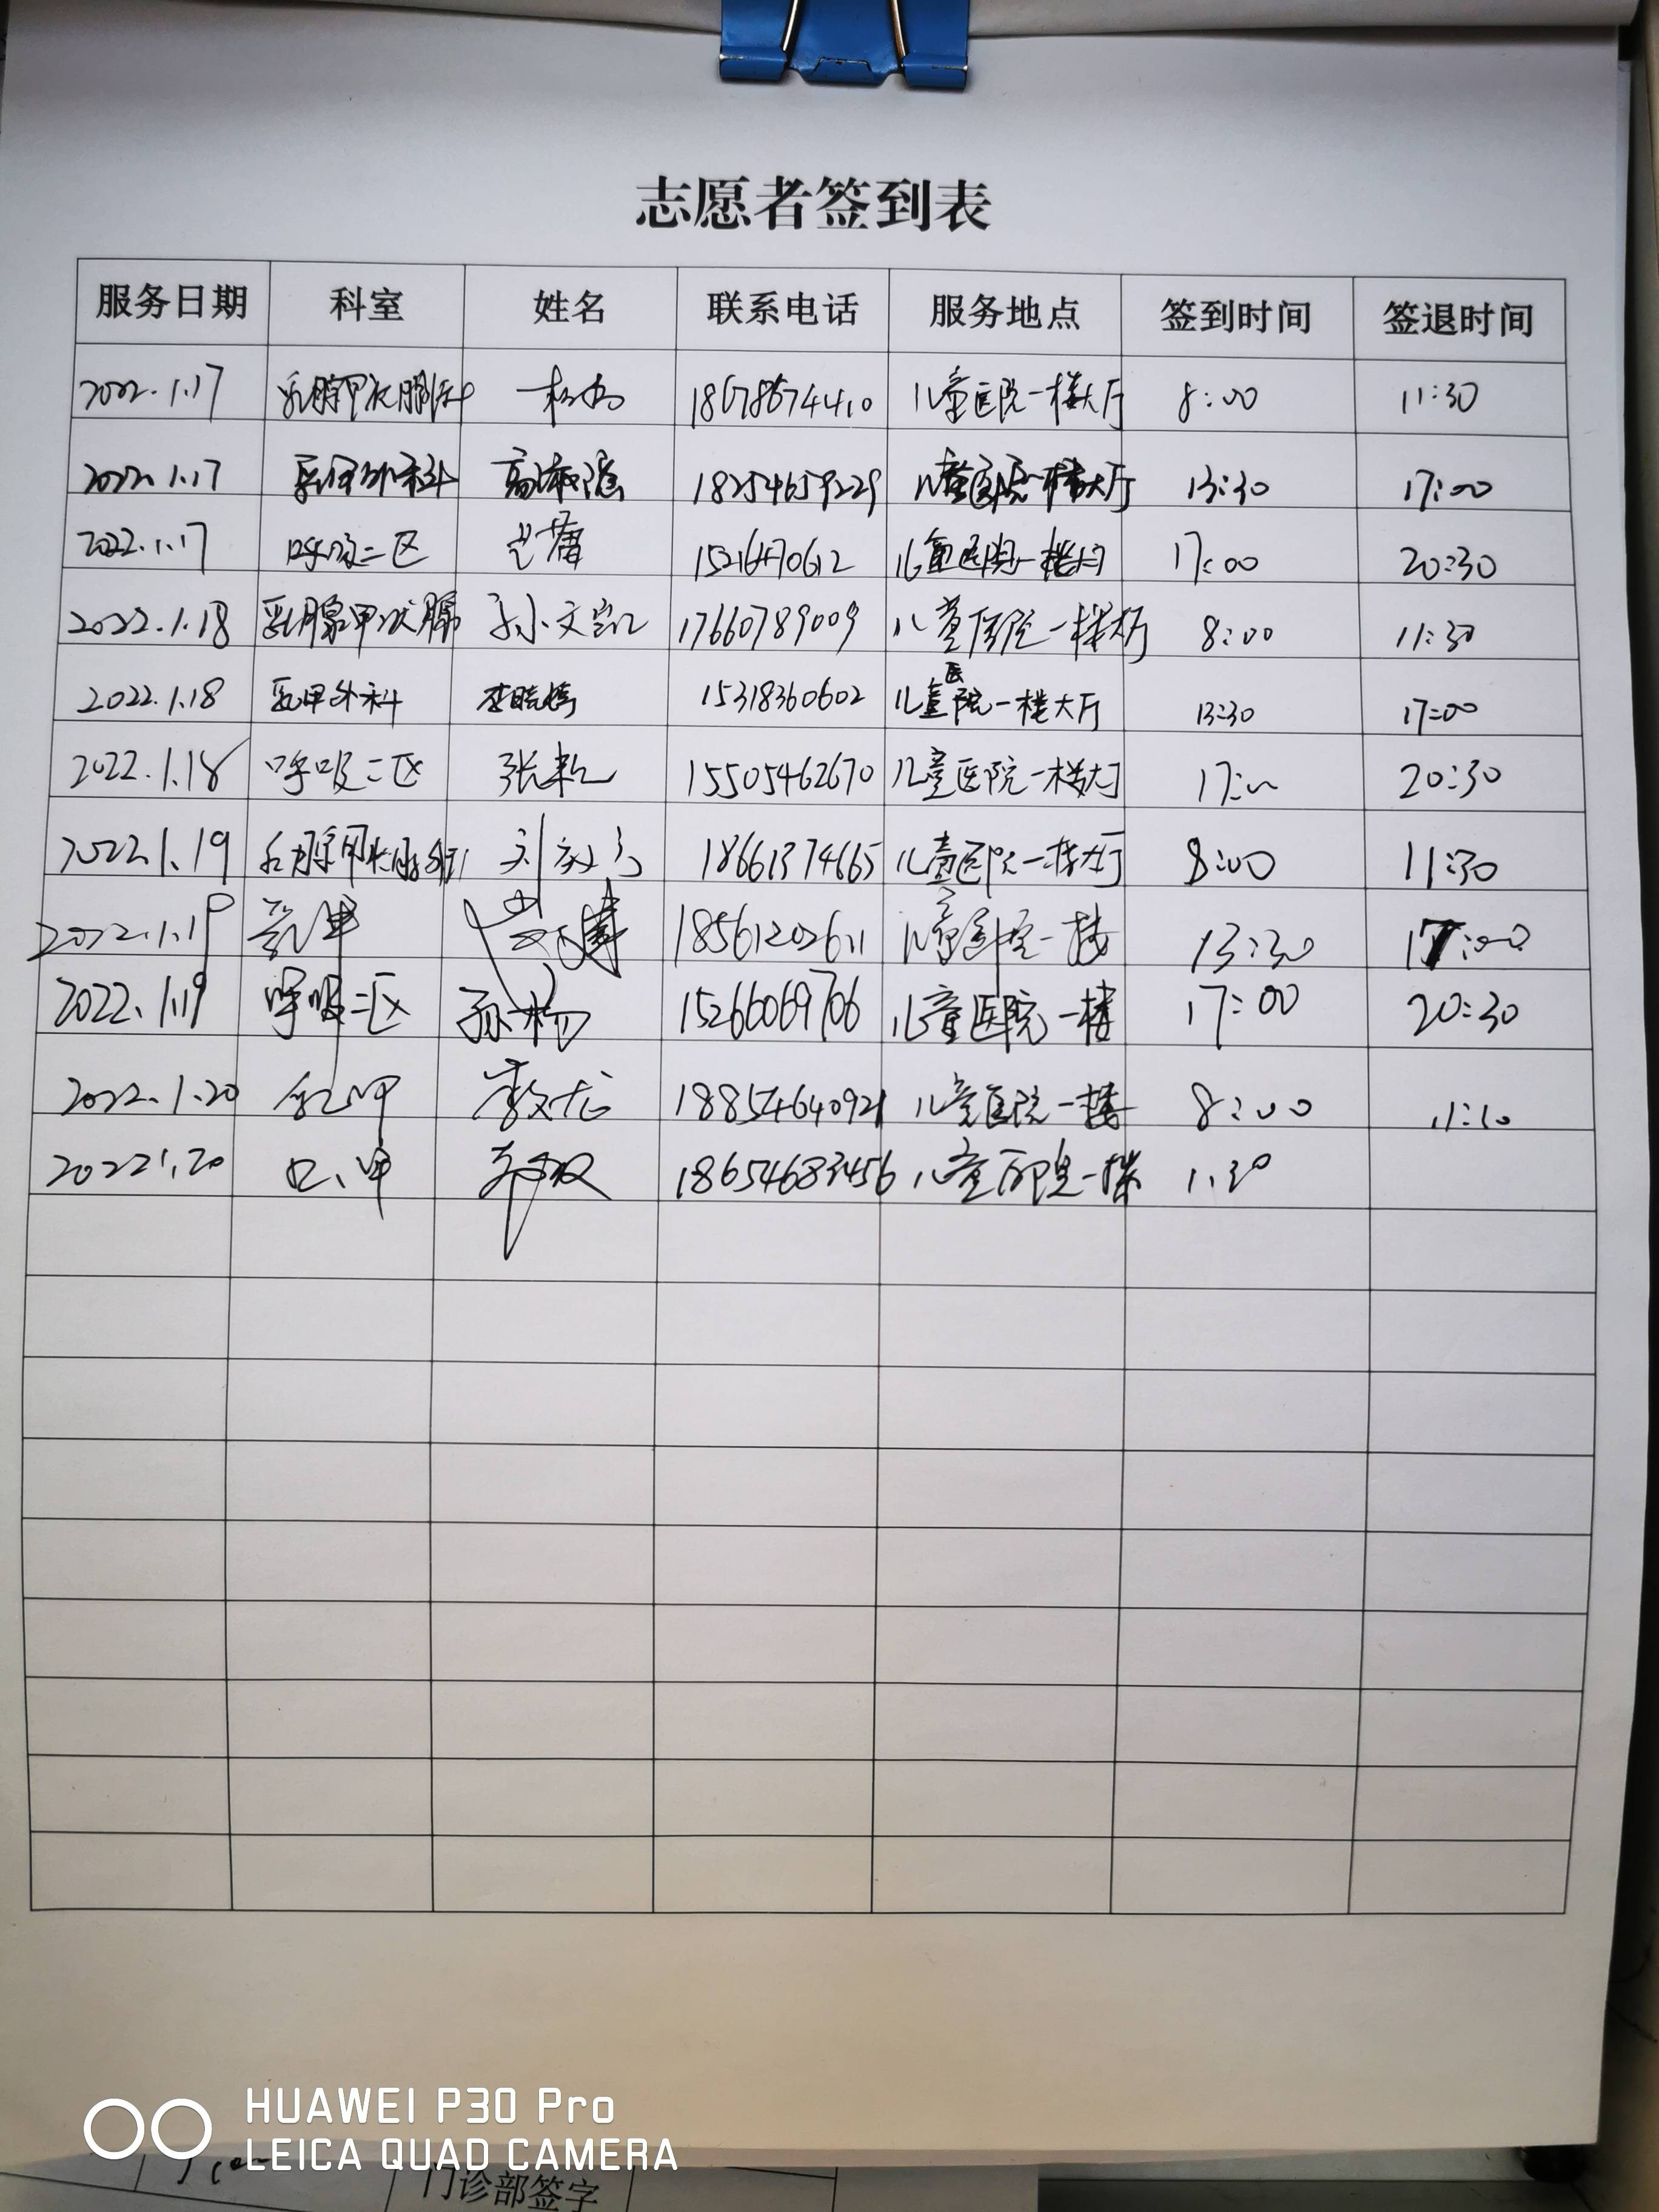 志愿者签到表
服务日期 科室 姓名 联系电话 服务地点 签到时间 签退时间
2022.1.17 18678674410 儿童医院一楼大厅 8:00 11:30
2022.1.17 乳甲外科 18254659229 儿童医院一楼大厅 13:30 17:00
2022.1.17 呼吸二区 儿童医院一楼大厅 17:00 20:30
2022.1.18 乳腺甲状腺 孙文凯 17660789009 儿童医院一楼大厅 8:00 11:30
2022.1.18 乳甲外科 李晓婷 15318360602 儿童医院一楼大厅 13:30 17:00
2022.1.18 呼吸二区 15505462670 儿童医院一楼大厅 17:00 20:30
2022.1.19 18661374665 儿童医院一楼大厅 8:00 11:30
2022.1.19 乳甲 18561202611 儿童医院一楼 13:30 17:00
2022.1.19 呼吸二区 孙杨 15266069706 儿童医院一楼 17:00 20:30
2022.1.20 乳甲 李文龙 18854640921 儿童医院一楼 8:00
2022.1.20 18654683456 儿童医院一楼 1:30
HUAWEI P30 Pro
LEICA QUAD CAMERA
门诊部签字